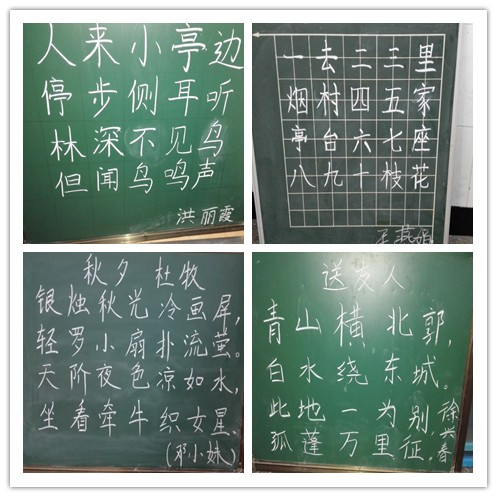 人来小亭边
停步侧耳听
林深不见鸟
但闻鸟鸣声
洪丽霞
一去二三里
烟村四五家
亭台六七座
八九十枝花
王燕娟
秋夕 杜牧
银烛秋光冷画屏，
轻罗小扇扑流萤。
天阶夜色凉如水，
坐看牵牛织女星
（邓小妹）
送友人
青山横北郭，
白水绕东城。
此地一为别，
孤蓬万里征。
徐兴春